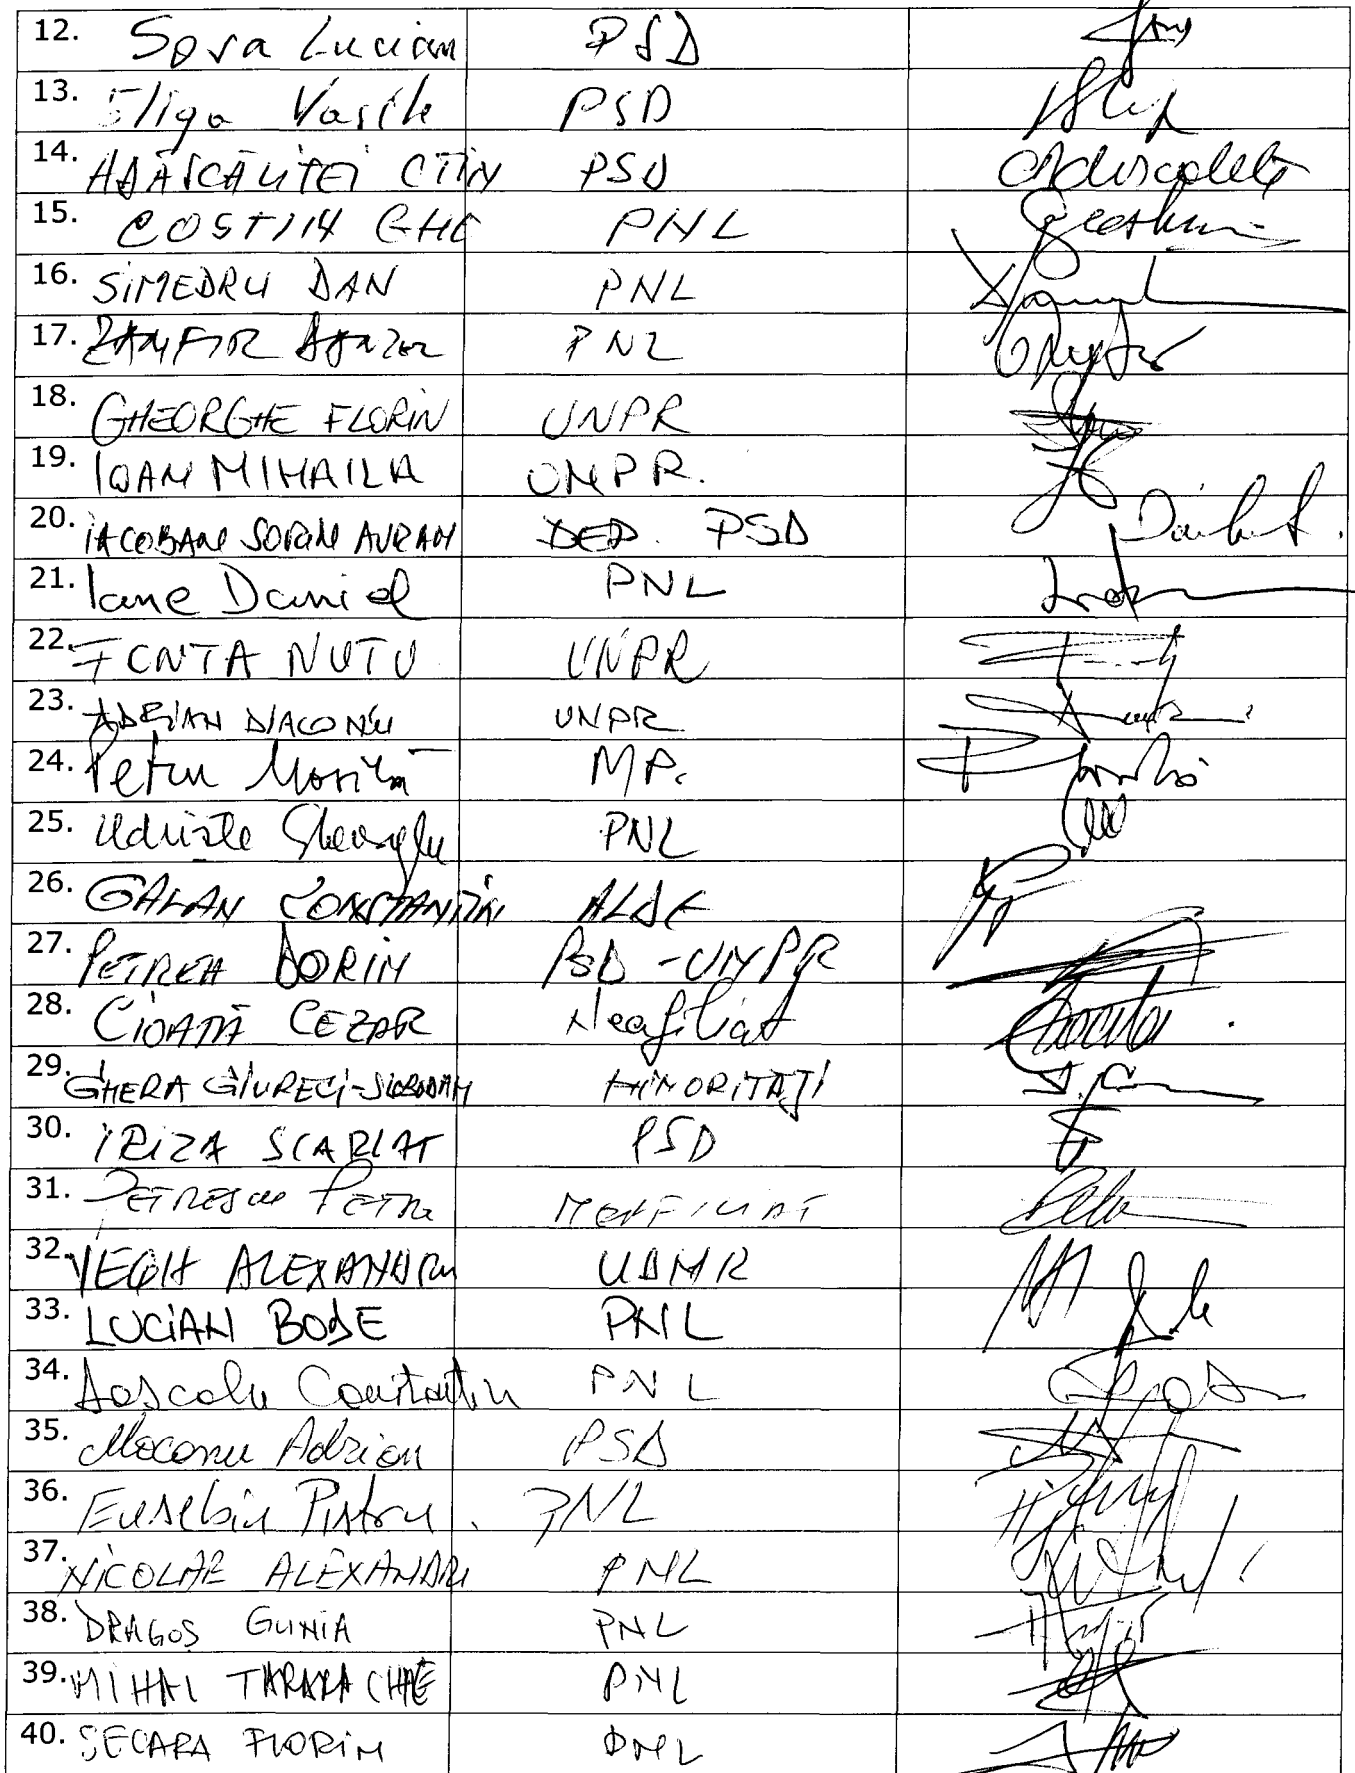 12. Șova Lucian PSD
13. Gliga Vasile PSD
14. ADĂSCĂLIȚEI CTIN PSD
15. COSTIN GHE PNL
16. SIMEDRU DAN PNL
17. ZAMFIR PNL
18. GHEORGHE FLORIN UNPR
19. IOAN MIHAILA UNPR.
20. IACOBAN SORIN AVRAM DEP. PSD
21. Iane Daniel PNL
22. FONTA NUTU UNPR
23. ADRIAN DIACONU UNPR
24. Petru Movilă MP.
25. Udriște Gheorghe PNL
26. GALAN CONSTANTIN ALDE
27. PETREA DORIN PSD - UNPR
28. CIOATĂ CEZAR Neafiliat
29. GHERA GIURECI-SLOBODAN MINORITĂȚI
30. IRIZA SCARLAT PSD
31. PETRESCU PETRU NEAFILIAT
32. VEGH ALEXANDRU UDMR
33. LUCIAN BODE PNL
34. Dascalu Constantin PNL
35. Mocanu Adrian PSD
36. Eusebiu Pistru. PNL
37. NICOLAE ALEXANDRU PNL
38. DRAGOȘ GUNIA PNL
39. MIHAI TARARACHE PNL
40. SECARA FLORIN PNL